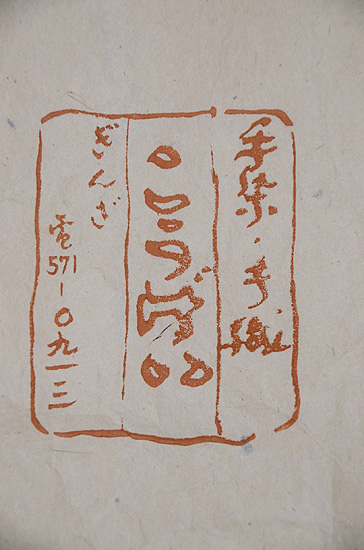 手染・手織
こうげい
ぎんざ
電571-〇九一三